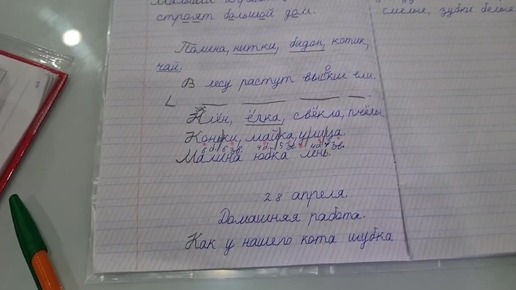 строят большой дом.
смелые, зубки белые
Полина, нитки, бидон, котик,
чай.
В лесу растут высокие ели.
Клён, ёлка, свёкла, пчёлы
Коньки, майка, улица
Малина юбка лень.
28 апреля.
Домашняя работа.
Как у нашего кота шубка